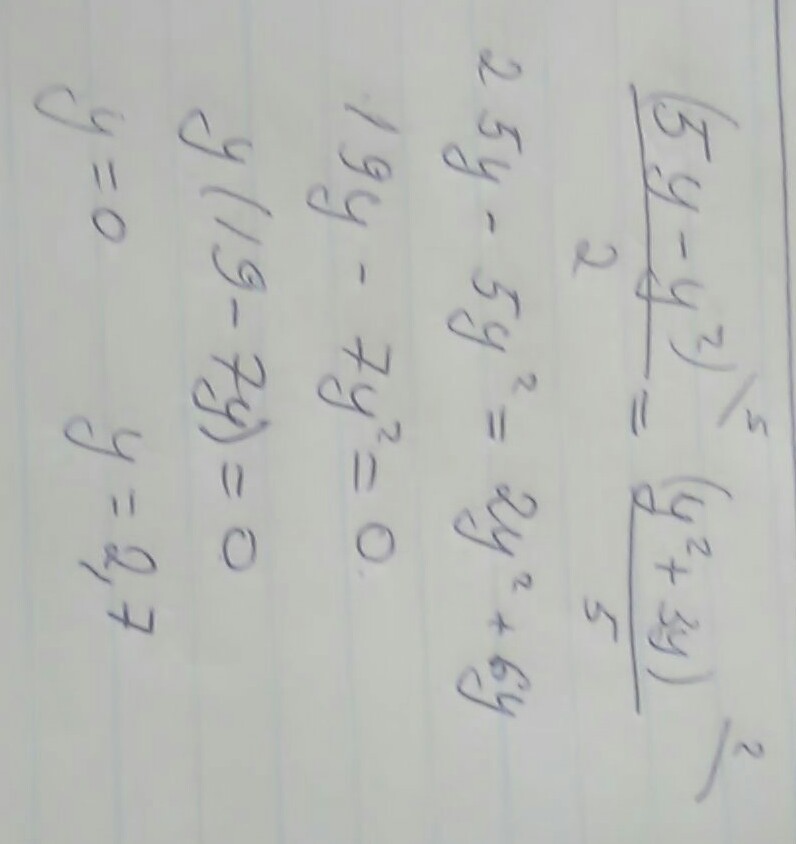 (5y - y²)\⁵ / 2 = (y² + 3y)\² / 5
25y - 5y² = 2y² + 6y
19y - 7y² = 0.
y(19 - 7y) = 0
y = 0 y = 2,7